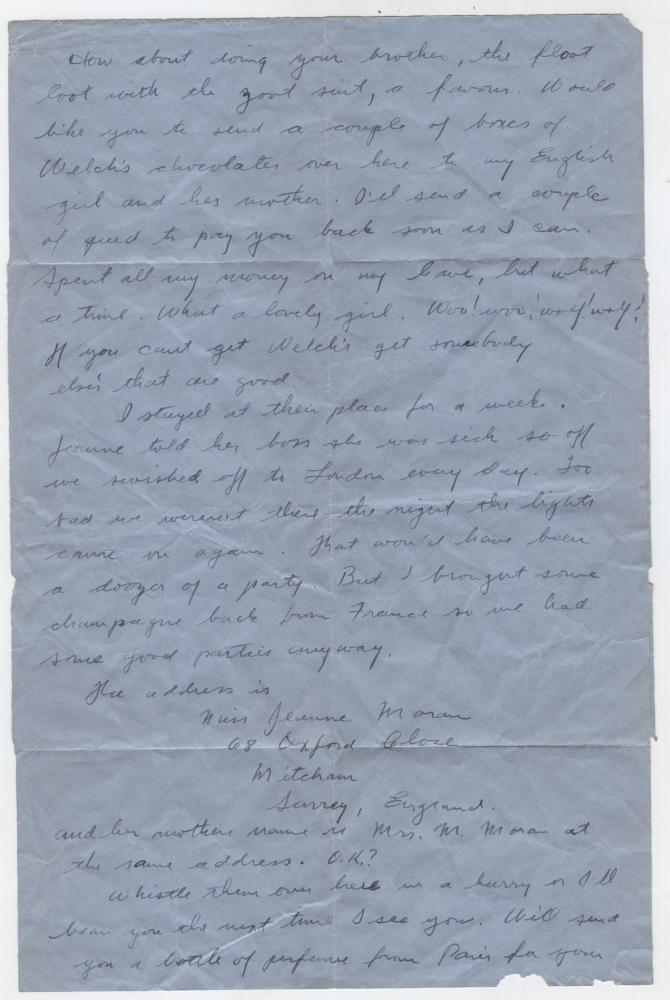 How about doing your brother, the float
loot with the goot suit, a favour. Would
like you to send a couple of boxes of
Welch's chocolates over here to my English
girl and her mother. I'll send a couple
of quid to pay you back soon as I can.
Spent all my money on my leave, but what
a time. What a lovely girl. Woo! woo! woof! woof!
If you can't get Welch's get somebody
else's that are good.
I stayed at their place for a week.
Jeanne told her boss she was sick so off
we swished off to London every day. Too
bad we weren't there the night the lights
came on again. That would have been
a doozer of a party. But I brought some
champagne back from France so we had
some good parties anyway.
The address is
Miss Jeanne Moran
68 Oxford Close
Mitcham
Surrey, England.
and her mothers name is Mrs. M. Moran at
the same address. O.K.?
Whistle them over here in a hurry or I'll
bean you the next time I see you. Will send
you a bottle of perfume from Paris for your